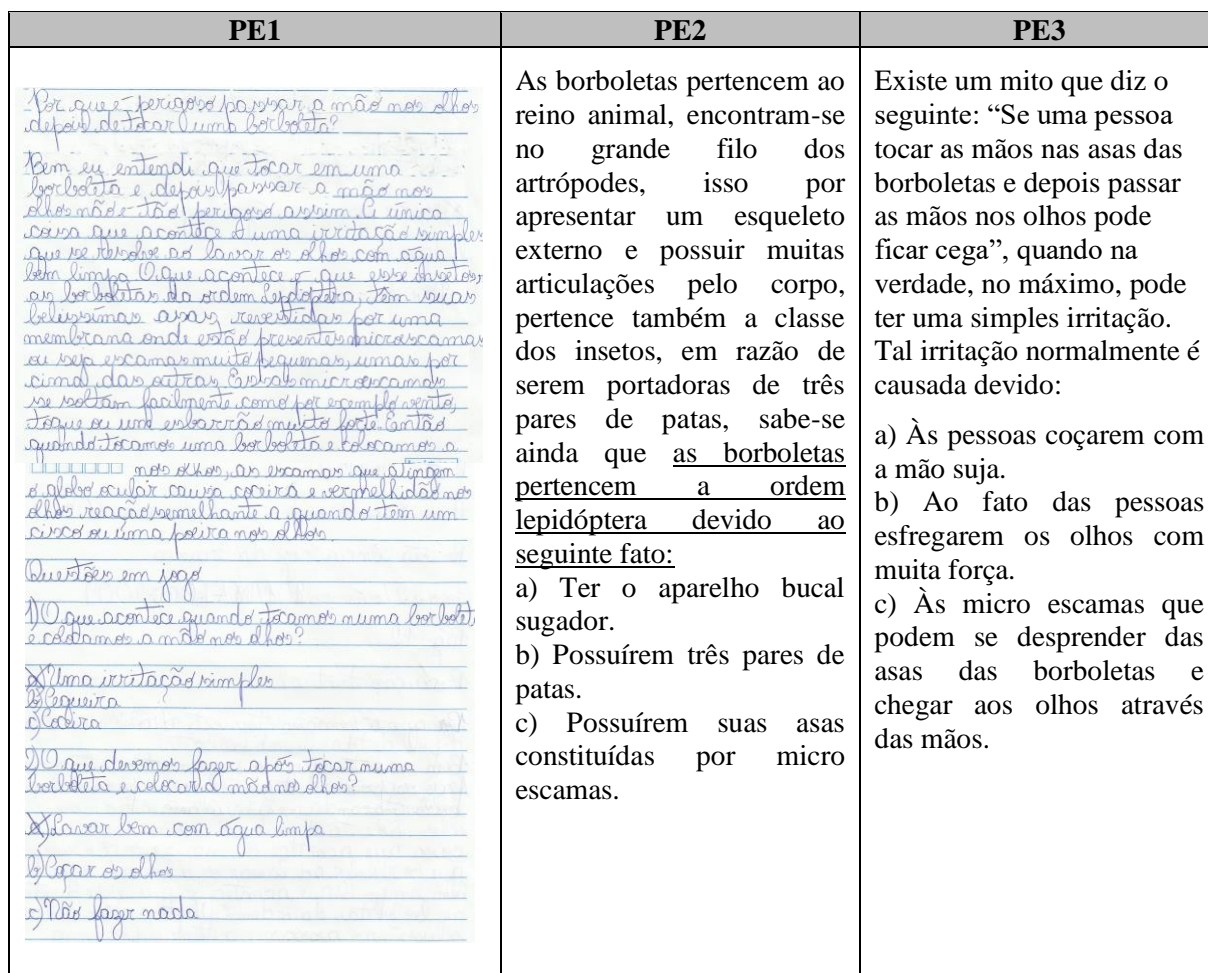 PE1
Por que é perigoso passar a mão nos olhos
depois de tocar uma borboleta?
Bem eu entendi que tocar em uma
borboleta e depois passar a mão nos
olhos não é tão perigoso assim. A única
coisa que acontece é uma irritação simples
que se resolve ao lavar os olhos com água
bem limpa. O que acontece é que esse insetos,
as borboletas da ordem Lepdoptera, têm suas
belissímas asas, revestidas por uma
membrana onde estão presentes microescamas
ou seja escamas muito pequenas, umas por
cima das outras. Essas microescamas
se soltam facilmente como por exemplo vento,
toque ou um esbarrão muito forte. Então
quando tocamos uma borboleta e colocamos a
nos olhos, as escamas que atingem
o globo ocular causa coceira e vermelhidão nos
olhos reação semelhante a quando tem um
cisco ou uma poeira nos olhos.
Questões em jogo
1) O que acontece quando tocamos numa borbolet
e colocamos a mão nos olhos?
a) Uma irritação simples
b) Cegueira
c) Coceira
2) O que devemos fazer após tocar numa
borboleta e colocar a mão nos olhos?
a) Lavar bem com água limpa
b) Coçar os olhos
c) Não fazer nada
PE2
As borboletas pertencem ao
reino animal, encontram-se
no grande filo dos
artrópodes, isso por
apresentar um esqueleto
externo e possuir muitas
articulações pelo corpo,
pertence também a classe
dos insetos, em razão de
serem portadoras de três
pares de patas, sabe-se
ainda que as borboletas
pertencem a ordem
lepidóptera devido ao
seguinte fato:
a) Ter o aparelho bucal
sugador.
b) Possuírem três pares de
patas.
c) Possuírem suas asas
constituídas por micro
escamas.
PE3
Existe um mito que diz o
seguinte: “Se uma pessoa
tocar as mãos nas asas das
borboletas e depois passar
as mãos nos olhos pode
ficar cega”, quando na
verdade, no máximo, pode
ter uma simples irritação.
Tal irritação normalmente é
causada devido:
a) Às pessoas coçarem com
a mão suja.
b) Ao fato das pessoas
esfregarem os olhos com
muita força.
c) Às micro escamas que
podem se desprender das
asas das borboletas e
chegar aos olhos através
das mãos.